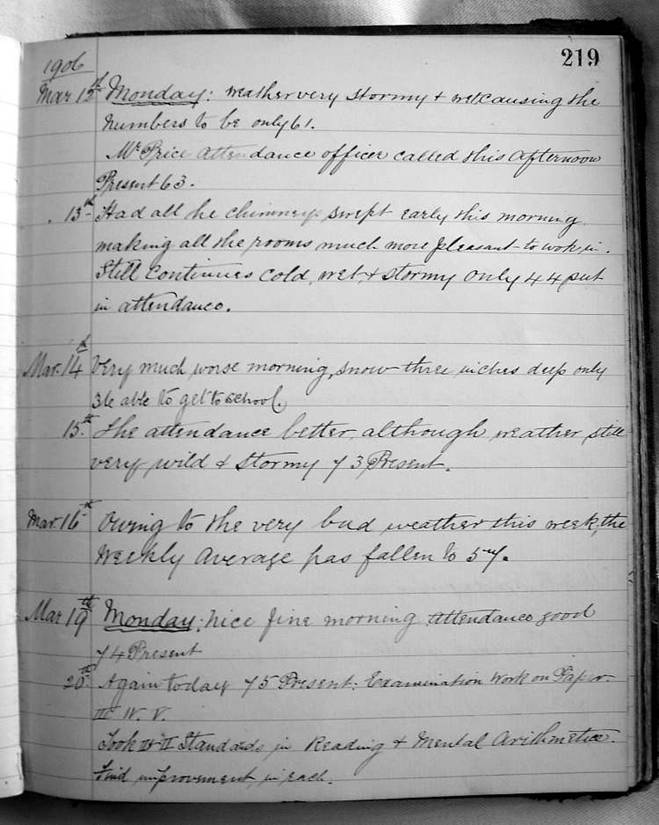 219
1906
Mar 12th Monday: Weather very stormy & wet causing the
numbers to be only 61.
Mr Price Attendance officer called this afternoon
Present 63.
13th Had all the chimneys swept early this morning
making all the rooms much more pleasant to work in.
Still continues cold, wet & stormy only 44 put
in attendance.
Mar. 14th Very much worse morning, snow three inches deep only
36 able to get to school
15th The attendance better, although weather still
very wild & stormy 73 Present.
Mar 16th Owing to the very bad weather this week, the
Weekly Average has fallen to 57.
Mar 19th Monday: Nice fine morning Attendance good
74 Present
20th Again today 75 Present: Examination Work on Paper
III IV. V.
Took II & II Standards in Reading & Mental Arithmetic.
Find improvement in each.